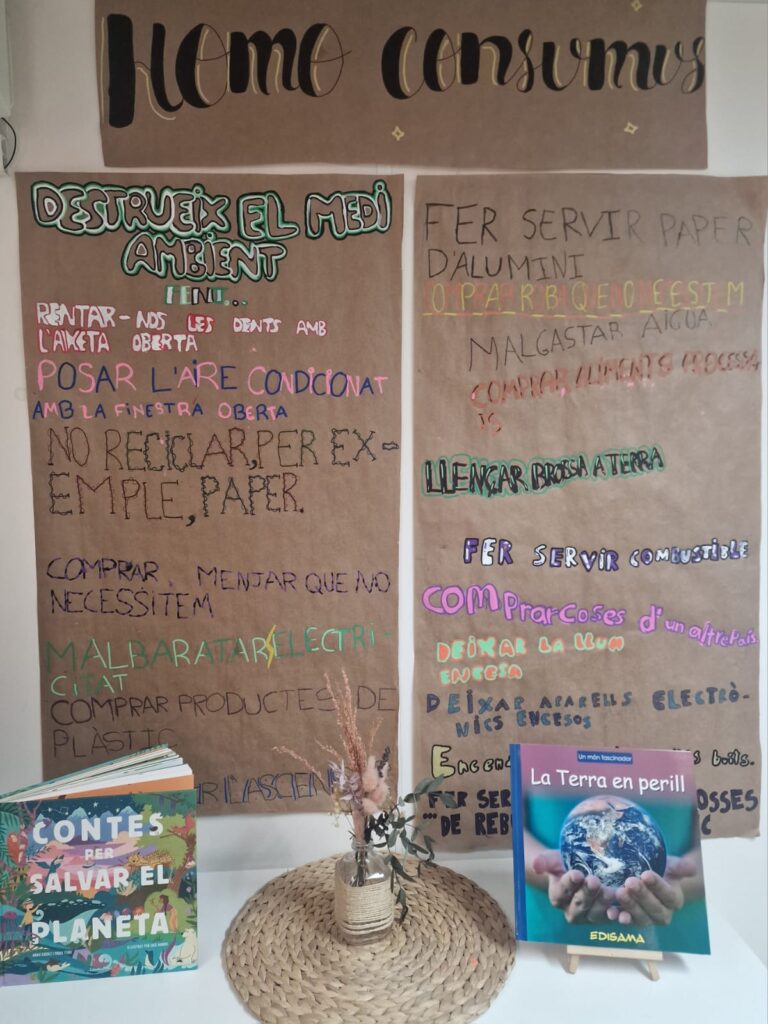 HOMO CONSUMUS
DESTRUEIX EL MEDI
AMBIENT
FENT...
RENTAR-NOS LES DENTS AMB
L'AIXETA OBERTA
POSAR L'AIRE CONDICIONAT
AMB LA FINESTRA OBERTA
NO RECICLAR, PER EX-
EMPLE, PAPER.
COMPRAR MENJAR QUE NO
NECESSITEM
MALBARATAR ELECTRI-
CITAT
COMPRAR PRODUCTES DE
PLÀSTIC
L'ASCENS
FER SERVIR PAPER
D'ALUMINI
MALGASTAR AIGUA
COMPRAR ALIMENTS PROCESSA
TS
LLENÇAR BROSSA A TERRA
FER SERVIR COMBUSTIBLE
COMPrar coses d'un altre País
DEIXAR LA LLUM
ENCESA
DEIXAR APARELLS ELECTRÒ-
NICS ENCESOS
FER SER OSSES
DE REB C
CONTES
PER
SALVAR EL
PLANETA
Un món fascinador
La Terra en perill
EDISAMA